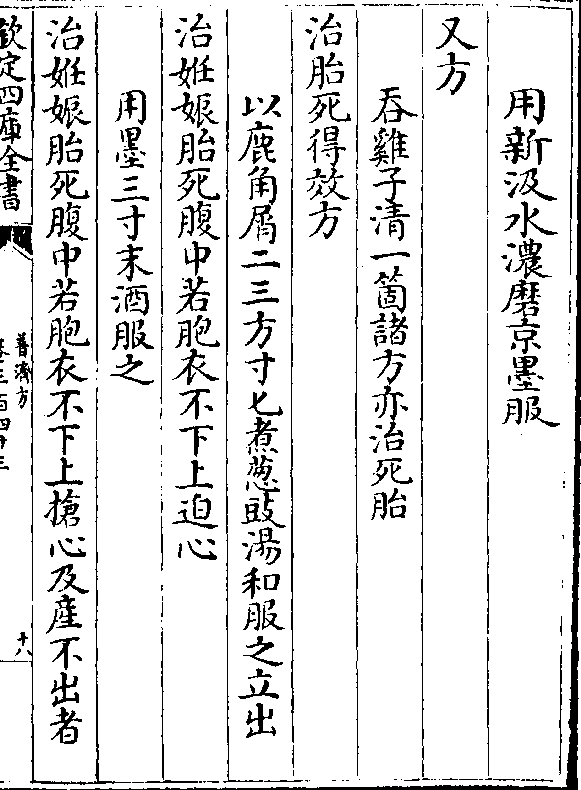 用新汲水濃磨京墨服
又方
吞雞子清一箇諸方亦治死胎
治胎死得效方
以鹿角屑二三方寸匕煮葱豉湯和服之立出
治姙娠胎死腹中若胞衣不下上迫心
用墨三寸末酒服之
治姙娠胎死腹中若胞衣不下上搶心及產不出者
欽定四庫全書
普濟方
卷三百四十三
十八